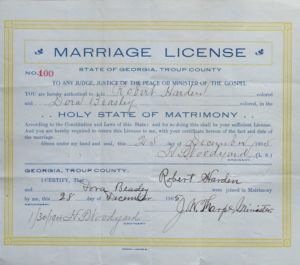 MARRIAGE LICENSE
STATE OF GEORGIA, TROUP COUNTY
NO. 400
TO ANY JUDGE, JUSTICE OF THE PEACE OR MINISTER OF THE GOSPEL
You are hereby authorized to join Robert Harden colored
and Dora Beasley colored, in the
HOLY STATE OF MATRIMONY
According to the Constitution and Laws of this State; and for so doing this shall be your sufficient License. And you are hereby required to return this License to me, with your certificate hereon of the fact and date of the marriage.
Given under my hand and seal, this 28 day of December
H. Woodyard (L. S.)
GEORGIA, TROUP COUNTY.
I CERTIFY, That Robert Hardin
and Dora Beasley were joined in Matrimony
by me, this 28 day of December 1905
J. W. Tharpe Minister
H. Woodyard